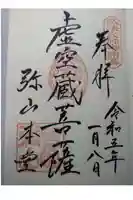 奉拝
令和五年
一月八日
虚空蔵菩薩
弥山本堂